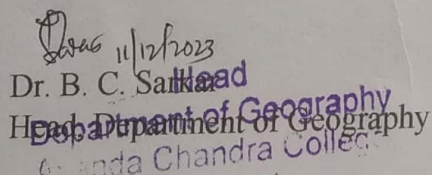 11/12/2023
Dr. B. C. Sarkar
Head
Head, Department of Geography
Department of Geography
nda Chandra Colleg